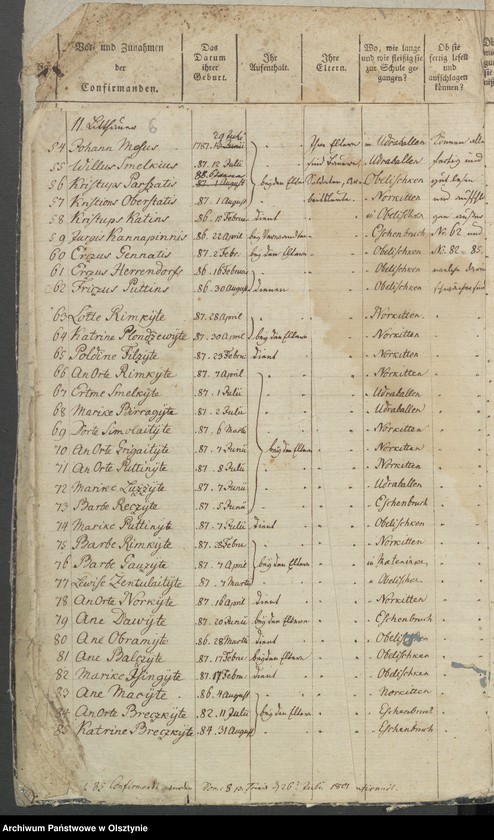 Vor- und Zunahmen der Confirmanden.
Das Datum ihrer Geburt.
Ihr Aufenthalt.
Ihre Eltern.
Wo, wie lange und wie fleißig sie zur Schule gegangen?
Ob sie fertig lesen und aufschlagen können?
11. Litthauer 6
54 Johann Mosus 1787.
55 Willus Smelkius 87. 12 Julii Udraballen
56 Kristups Parssatis 87. 1 August bey den Eltern Obelischken
57 Kristions Oberssatis 87. 1 August Norkitten
58 Kristups Katins 86. 10 Febru dient in Obelischken
59 Jurgis Kannapinnis 86. 22 April bey Verwandten Eschenbruch No. 62 und
60 Erczus Gennatis 87. 2 Febr. bey den Eltern Obelischken No. 82-85.
61 Crzus Herrendorfs 86. 16 Februar Obelischken
62 Friczus Puttins 86. 30 August dienen Obelischken
63 Lotte Rimkyte 87. 28 April Norkitten
64 Katrine Plondzewyte 87. 30 April bey den Eltern Norkitten
65 Poldine Filzyte 87. 23 Febru dient Norkitten
66 An Orte Rimkyte 87. 7 April Norkitten
67 Ertme Smelkyte 87. 1 Julii Udraballen
68 Marike Pirragyte 87. 2 Julii Udraballen
69 Dorte Simolaityte 87. 6 Martii Norkitten
70 An Orte Grigaityte 87. 7 Junii bey den Eltern Norkitten
71 An Orte Puttinyte 87. 8 Julii Norkitten
72 Marike Luzzyte 87. 7 Junii Udraballen
73 Barbe Reczyte 87. 5 Junii Eschenbruch
74 Marike Puttinyte 87. 7 Julii dient Obelischken
75 Barbe Rimkyte 87. 28 Febru Norkitten
76 Barbe Gauzyte 87. 7 April bey den Eltern in Mateninken
77 Lewise Zentulaityte 87. 7 Martii Obelischken
78 An Orte Norkyte 87. 16 April dient Norkitten
79 Ane Dawyte 87. 20 Junii bey den Eltern Eschenbruch
80 Ane Obranyte 86. 28 Martii dient Obelischken
81 Ane Balczyte 87. 17 Febru bey den Eltern Obelischken
82 Marike 87. 17 Febru dient Obelischken
83 Ane Macyte 86. 4 August Norkitten
84 An Orte Breczkyte 82. 11 Julii bey den Eltern Eschenbruch
85 Katrine Breczkyte 84. 31 August Eschenbruch
85 Confirmanden wurden Dom: 8 p. Trinit. d. 26t Julii 1801 confirmirt.
Archiwum Państwowe w Olsztynie
www.olsztyn.ap.gov.pl